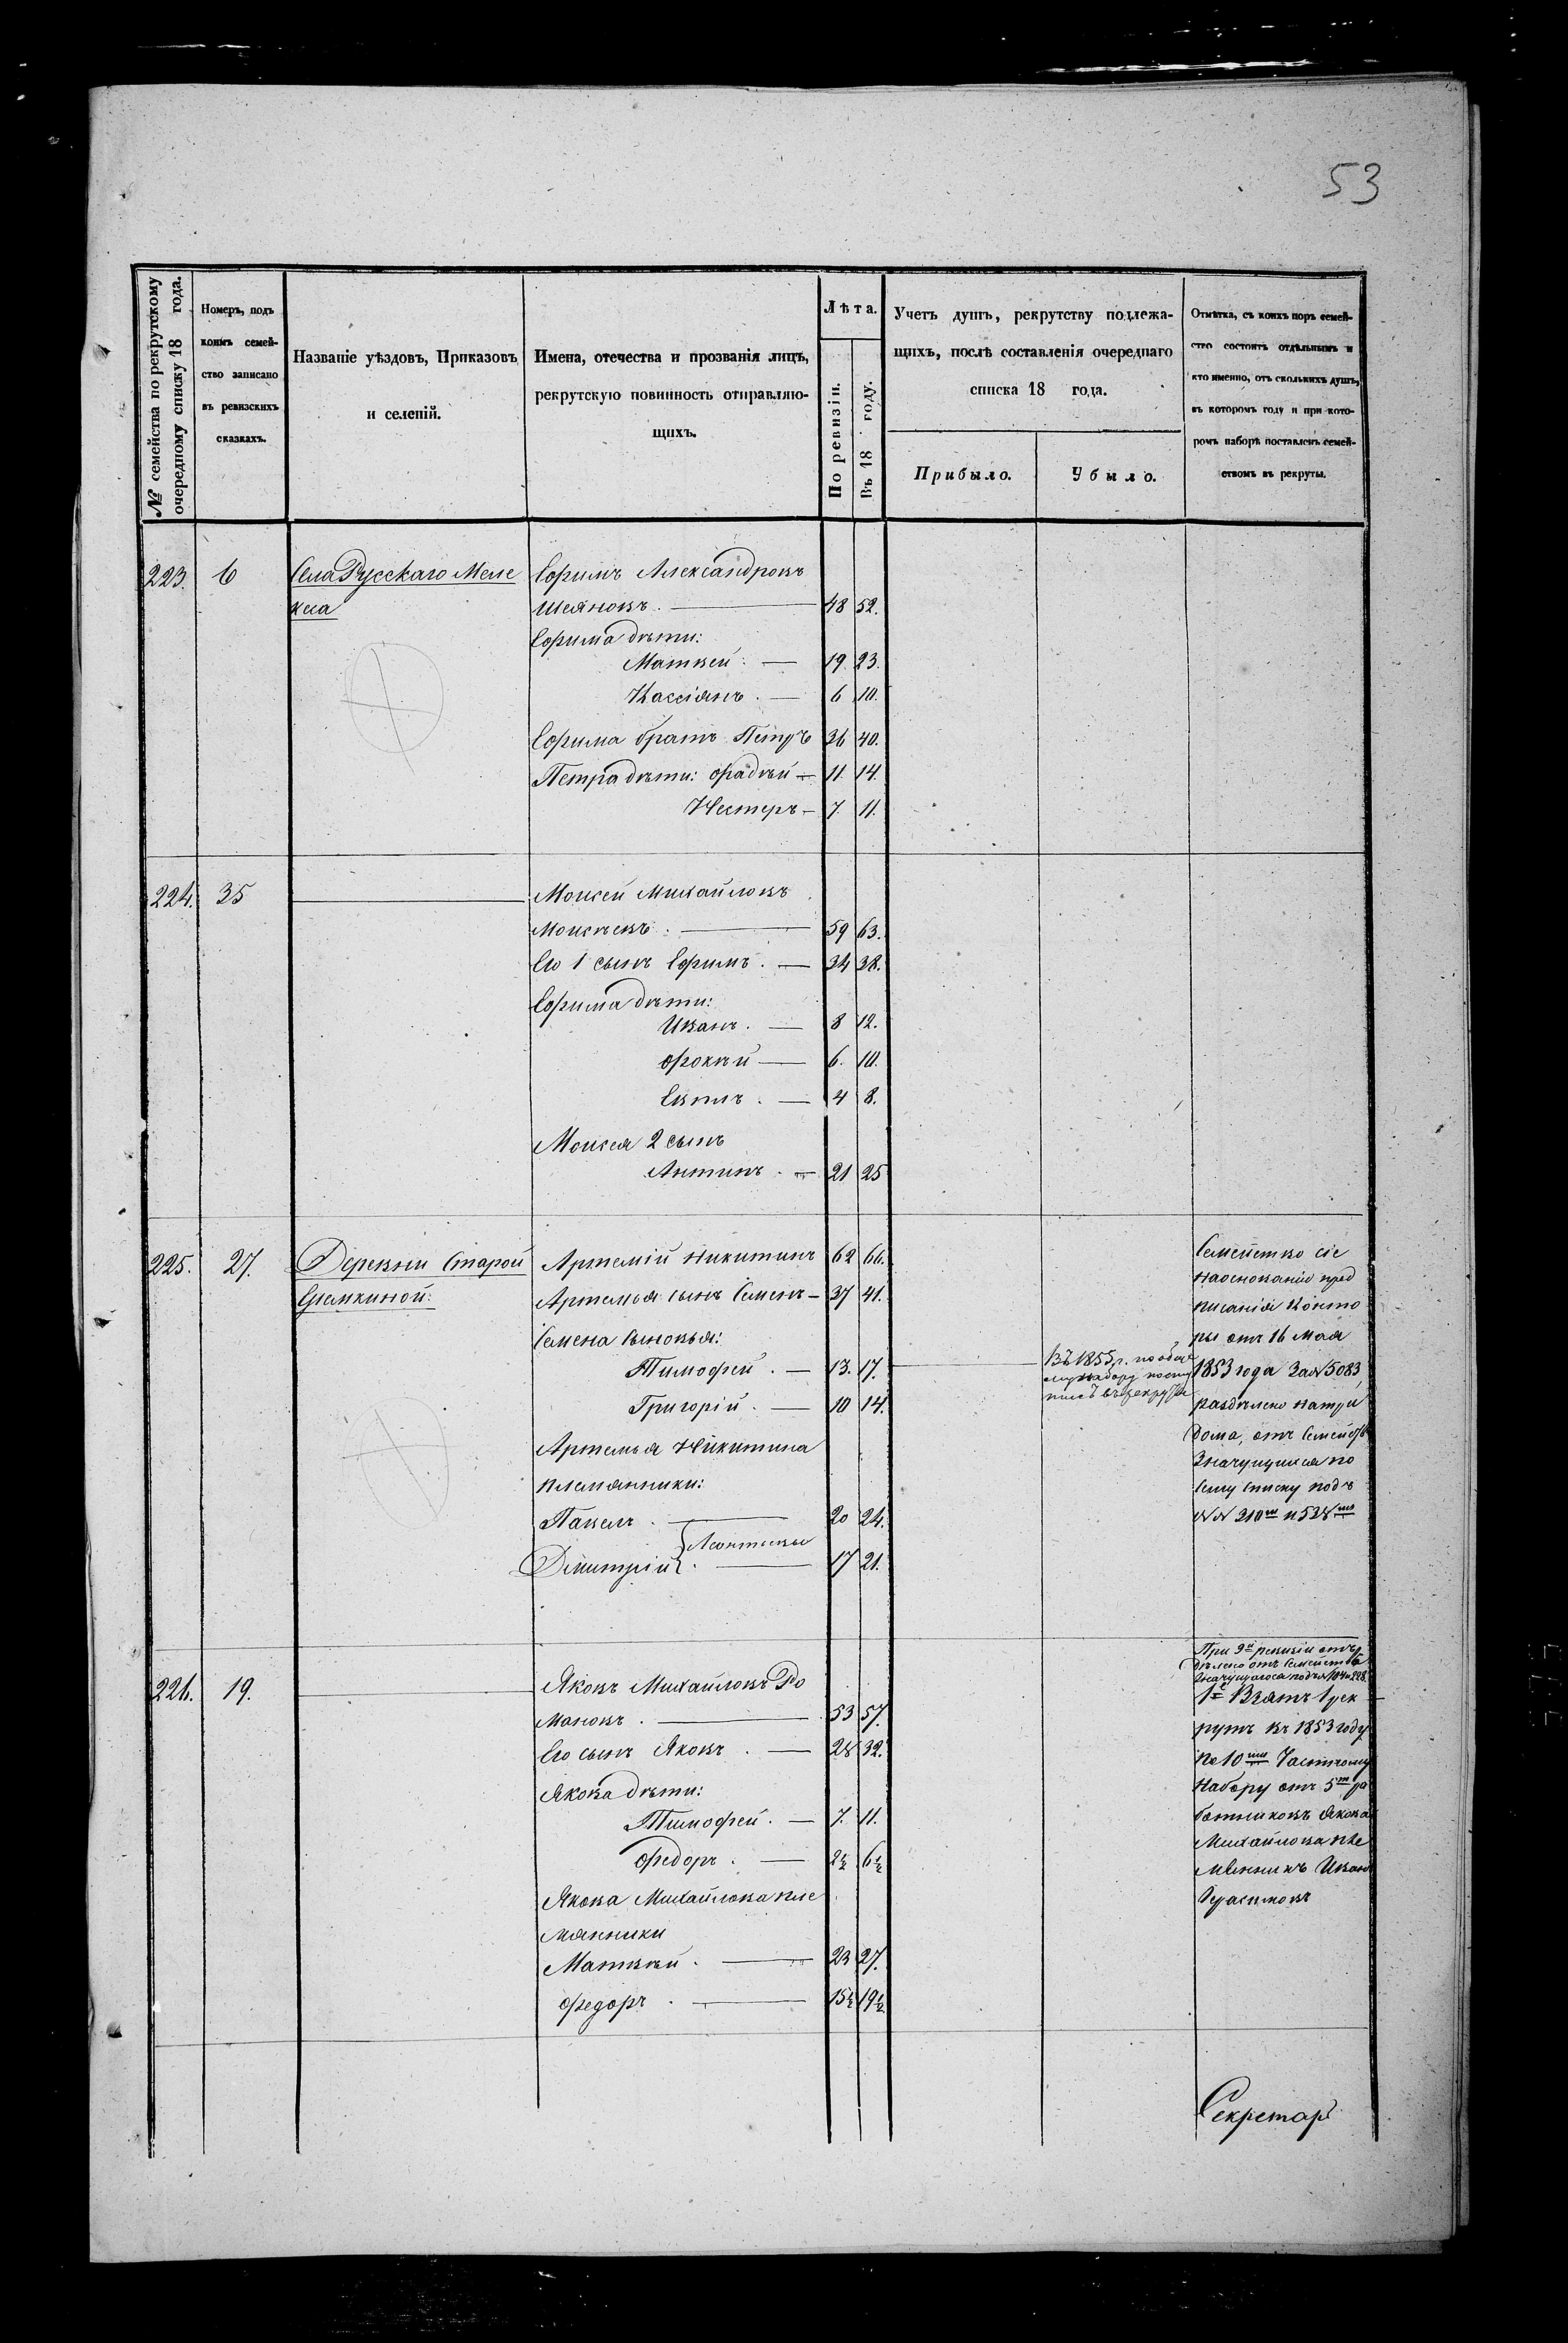 53
№ семейства по рекрутскому
очередному списку 18 года.
Номеръ, подъ
коимъ семей-
ство записано
въ ревизскихъ
сказкахъ.
Названіе уѣздовъ, Приказовъ
и селеній.
Имена, отечества и прозванія лицъ,
рекрутскую повинность отправляю-
щихъ.
Лѣта.
По ревизіи.
Въ 18 году.
Учетъ душъ, рекрутству подлежа-
щихъ, послѣ составленія очереднаго
списка 18 года.
Прибыло.
Убыло.
Отмѣтка, съ коихъ поръ семей-
ство состоитъ отдѣльнымъ и
кто именно, отъ сколькихъ душъ,
въ которомъ году и при кото-
ромъ наборѣ поставленъ семей-
ствомъ въ рекруты.
223. 6 Села Русскаго Меле Ефимъ Александровъ
кеса 48 52.
Ефима дѣти:
Матвей. 19. 23.
Кассіянъ. 6 10.
Ефима братъ Петръ 36 40.
Петра дѣти: Фадѣй 11. 14.
Нестеръ 7. 11.
224. 35 Моисей Михайловъ
Моисѣевъ. 59 63.
Его 1 сынъ Ефимъ. 34 38.
Ефима дѣти:
Иванъ. 8 12.
Фокѣй 6. 10.
4 8.
Моисея 2 сынъ
Антипъ. 21 25
225. 27. Деревни Старой Артемій Никитинъ 62 66.
Артемья сынъ Семенъ 37 41.
Семена сыновья:
Тимофей. 13. 17.
Григорій. 10 14.
Артемья Никитина
племянники:
Павелъ. 20 24.
Леонтьевы
Дмитрій. 17 21.
Въ 1855 г. по
набору
въ рекруты
Семейство сіе
на основаніи пред
писанія Конто
ры отъ 16 мая
1853 года за № 5083,
раздѣлено на три
дома, отъ семействъ
значущихся по
сему списку подъ
№№ 210м и 528мъ
226. 19. Яковъ Михайловъ Ро
мановъ. 53 57.
Его сынъ Яковъ. 28 32.
Якова дѣти:
Тимофей. 7. 11.
Федоръ. 2½ 6½
Якова Михайлова пле
мянники
Матвѣй. 23 27.
Федоръ. 15½ 19½
При 9й ревизіи отъ
дѣлено отъ семейства
значущагося подъ №
1е Взятъ 1 рек
рутъ въ 1853 году
по 10му Частному
набору отъ 5ти ра
ботниковъ Якова
Михайлова пле
мянникъ Иванъ
Герасимовъ
Секретарь